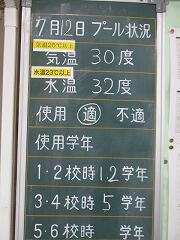 7月12日 プール状況
気温25℃以上
気温 30度
水温23℃以上
水温 32度
使用 適 不適
使用学年
1・2校時 12学年
3・4校時 5 学年
5・6校時 学年